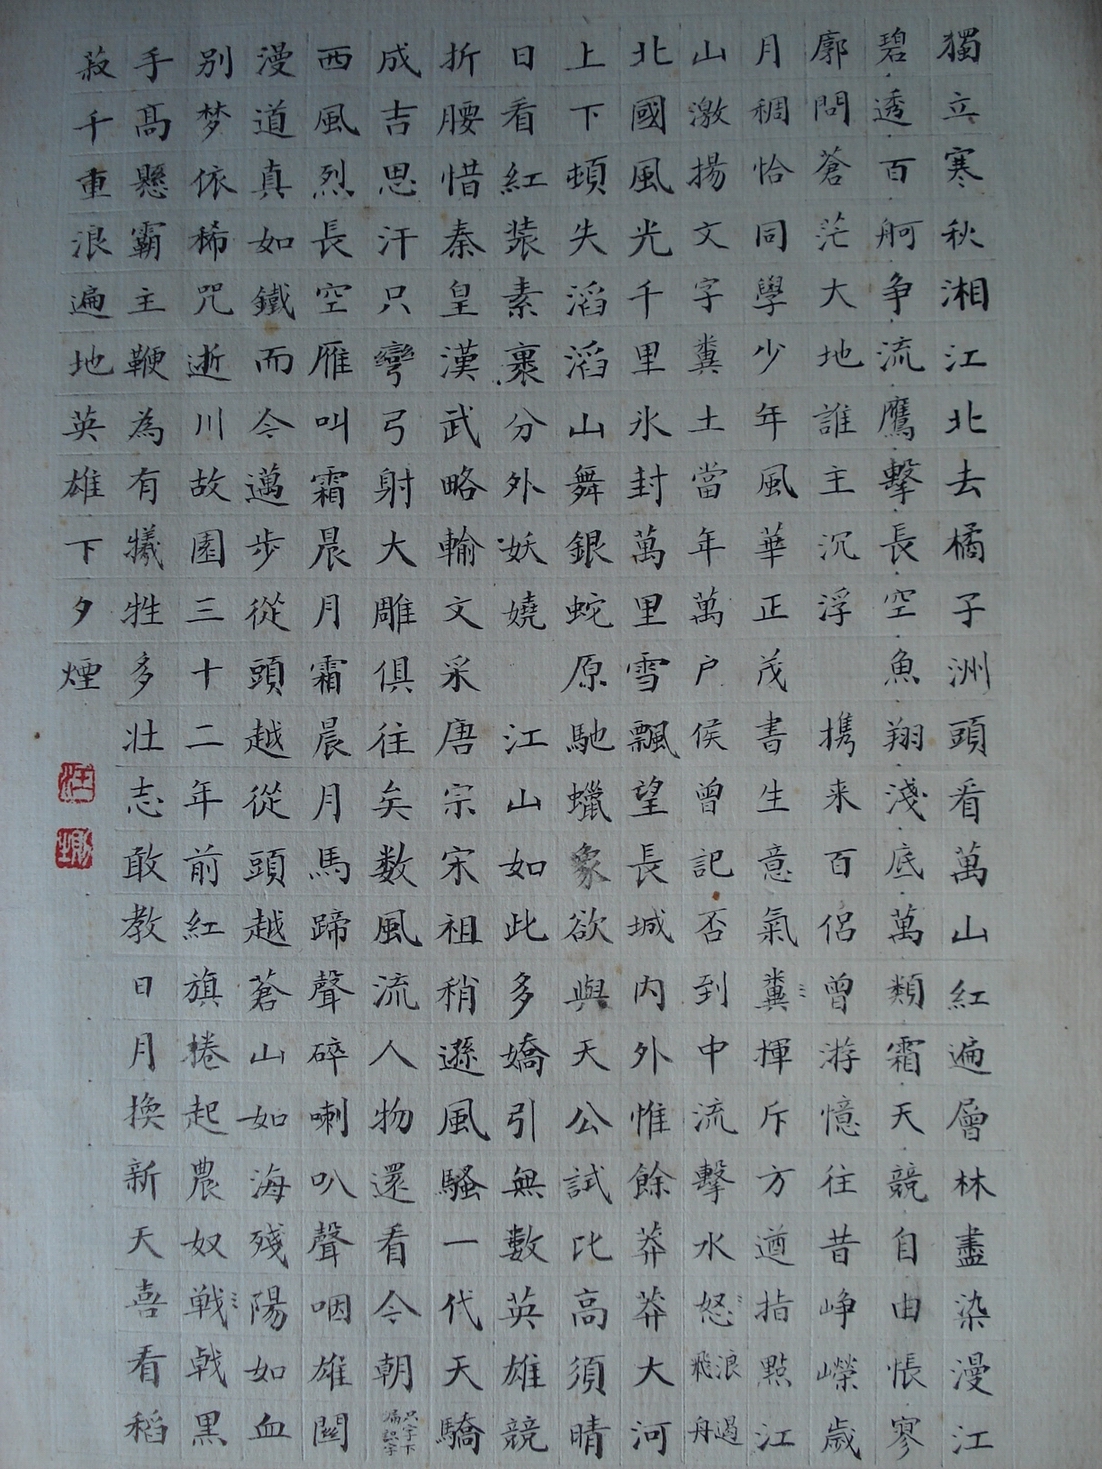 獨立寒秋湘江北去橘子洲頭看萬山紅遍層林盡染漫江
碧透百舸争流鷹擊長空魚翔淺底萬類霜天競自由悵寥
廓問蒼茫大地誰主沉浮 携来百侣曾游憶往昔崢嶸歲
月稠恰同學少年風華正茂書生意氣糞揮斥方遒指點江
山激揚文字糞土當年萬户侯曾記否到中流擊水怒浪飛過舟
北國風光千里氷封萬里雪飄望長城内外惟餘莽莽大河
上下頓失滔滔山舞銀蛇原馳蠟象欲與天公試比高須晴
日看紅装素裹分外妖嬈 江山如此多嬌引無數英雄競
折腰惜秦皇漢武略輸文采唐宗宋祖稍遜風騷一代天驕
成吉思汗只彎弓射大雕俱往矣数風流人物還看今朝只字下漏識字
西風烈長空雁叫霜晨月霜晨月馬蹄聲碎喇叭聲咽雄関
漫道真如鐵而今邁步從頭越從頭越蒼山如海殘陽如血
别梦依稀咒逝川故園三十二年前紅旗捲起農奴戦戟黑
手高懸霸主鞭為有犧牲多壮志敢教日月換新天喜看稻
菽千重浪遍地英雄下夕煙